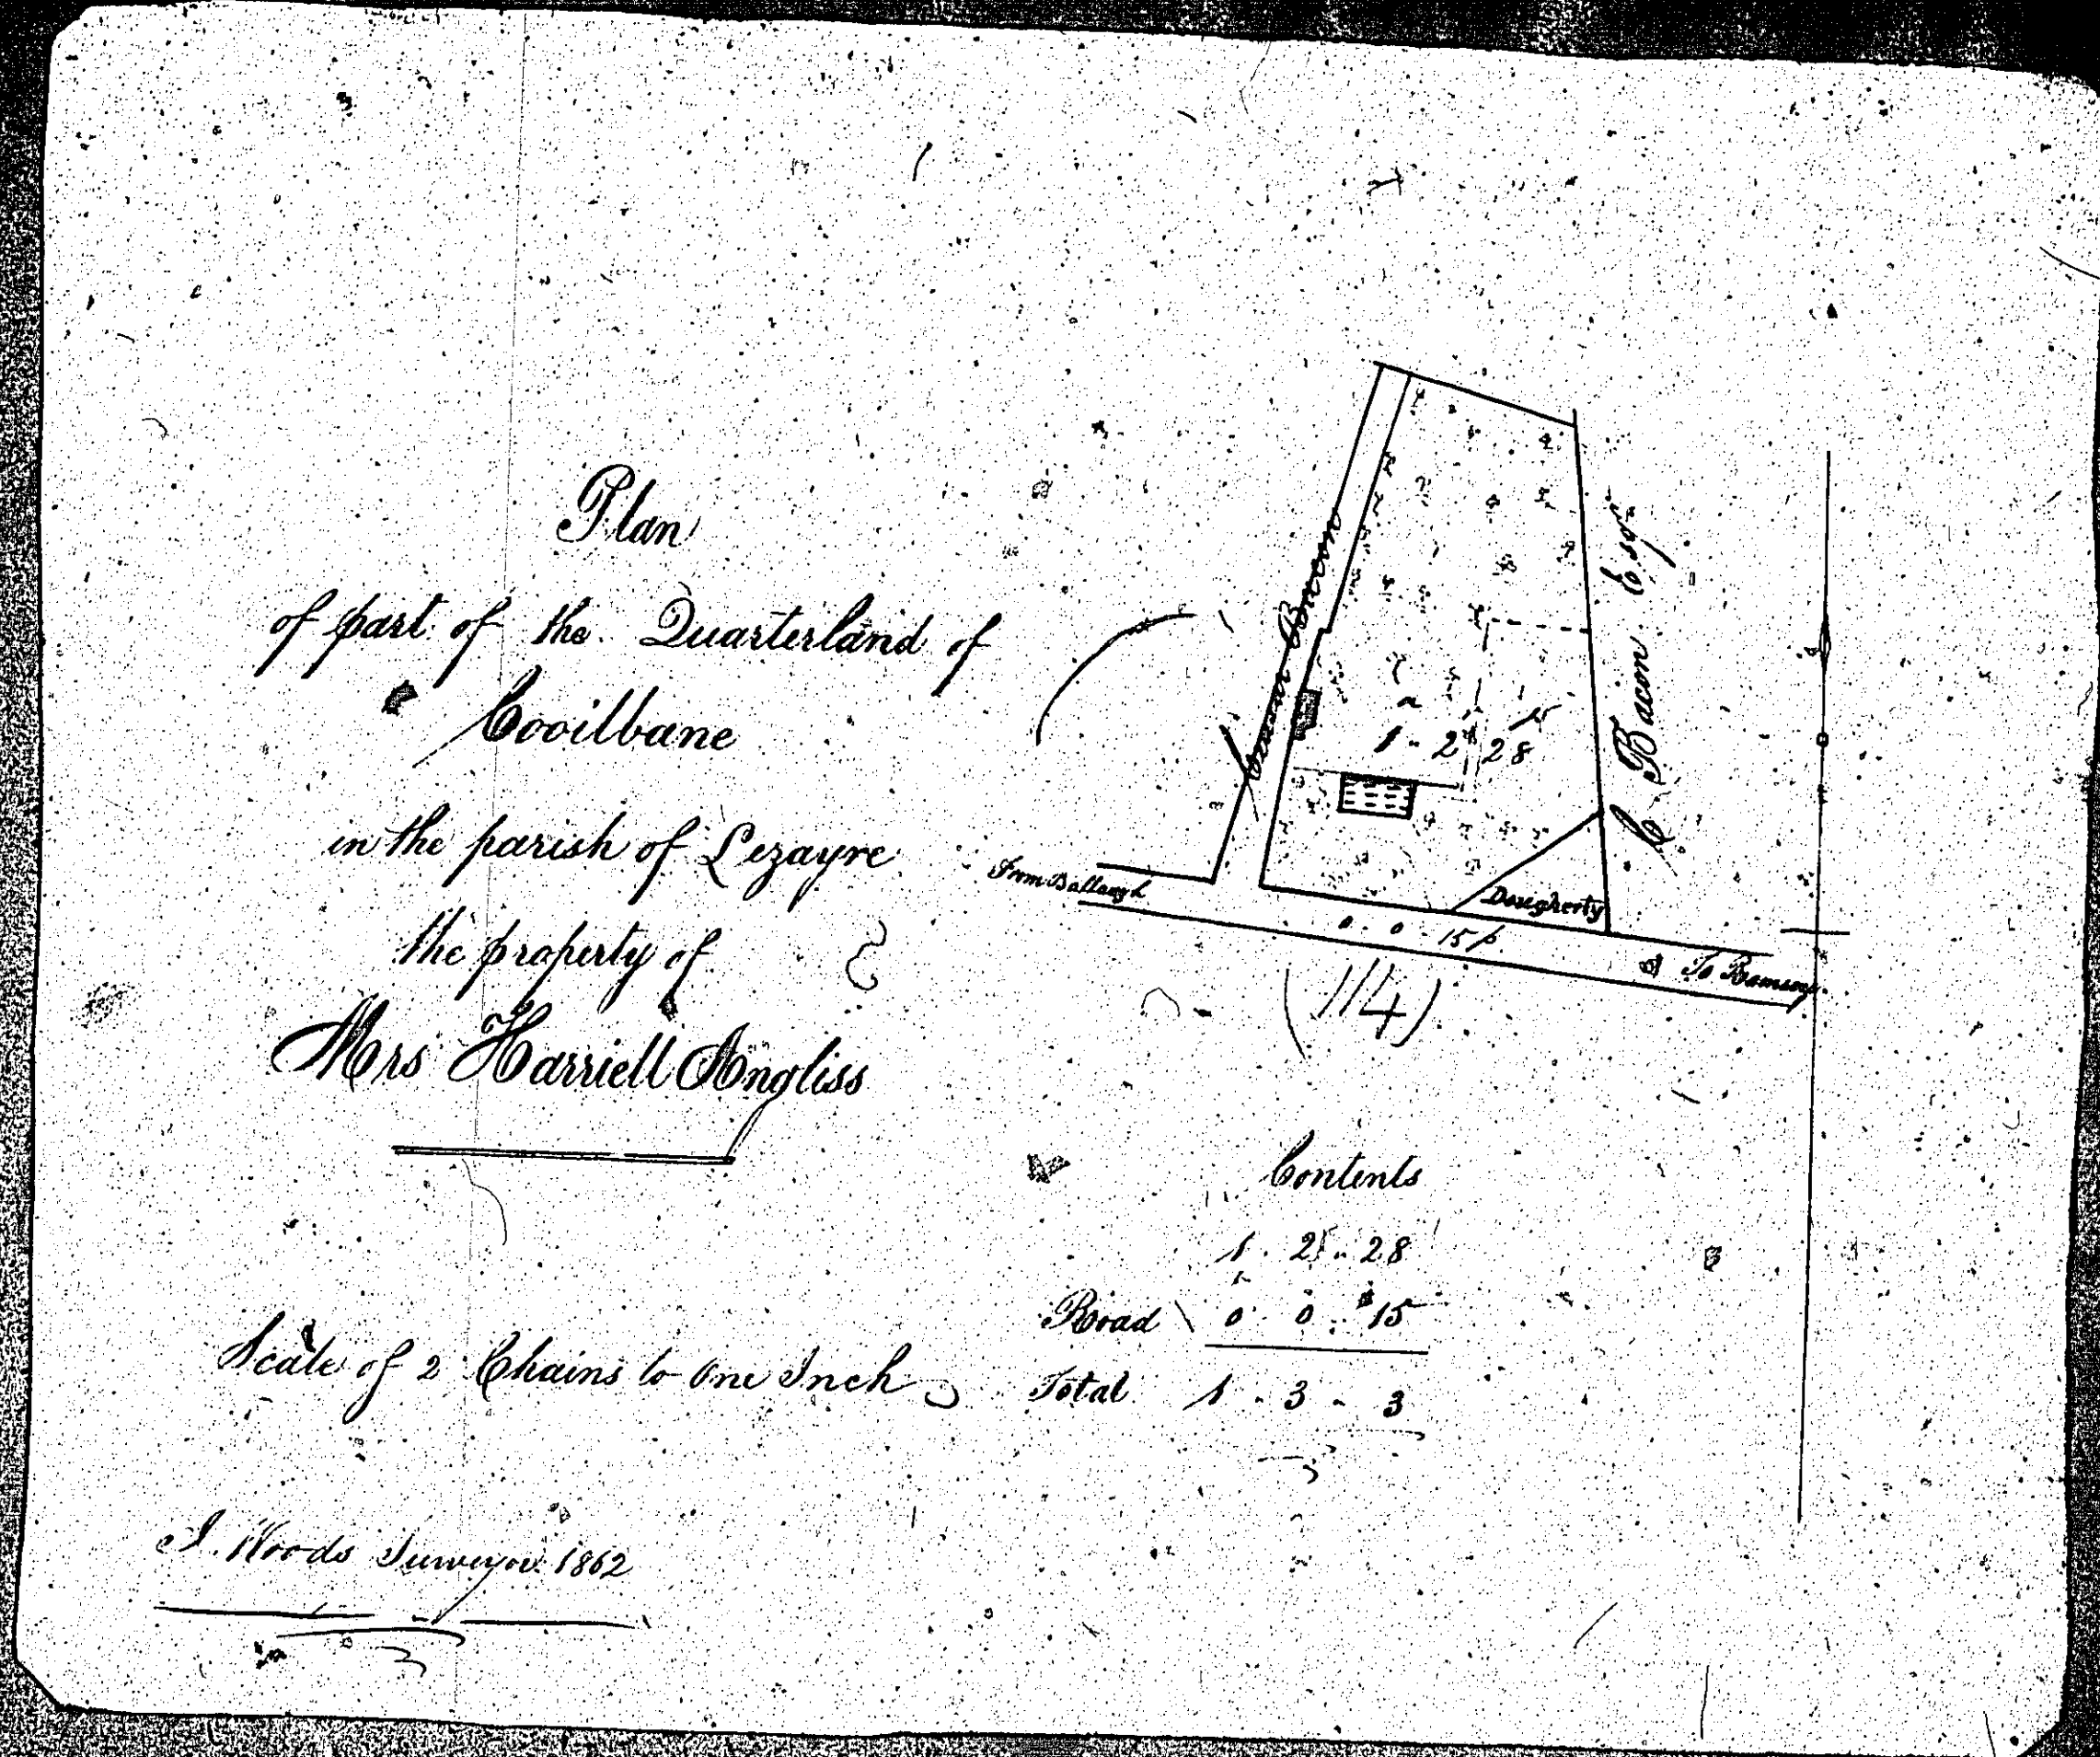 Plan
of part of the Quarterland of
Cooilbane
in the parish of Lezayre
the property of
Mrs Harriell Angliss
Scale of 2 Chains to One Inch
J. Woods Surveyor 1862
C Bacon Esqr
1 - 2 - 28
From Ballaugh
Dougherty
0 - 0 - 15 p.
To Ramsey
(114)
Contents
1 . 2 . 28
Road 0 . 0 . 15
Total 1 - 3 - 3